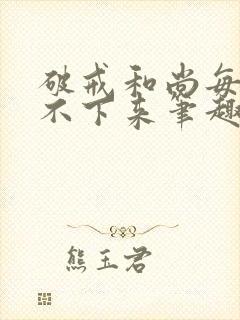 破戒和尚每
不下来笔趣
熊玉君